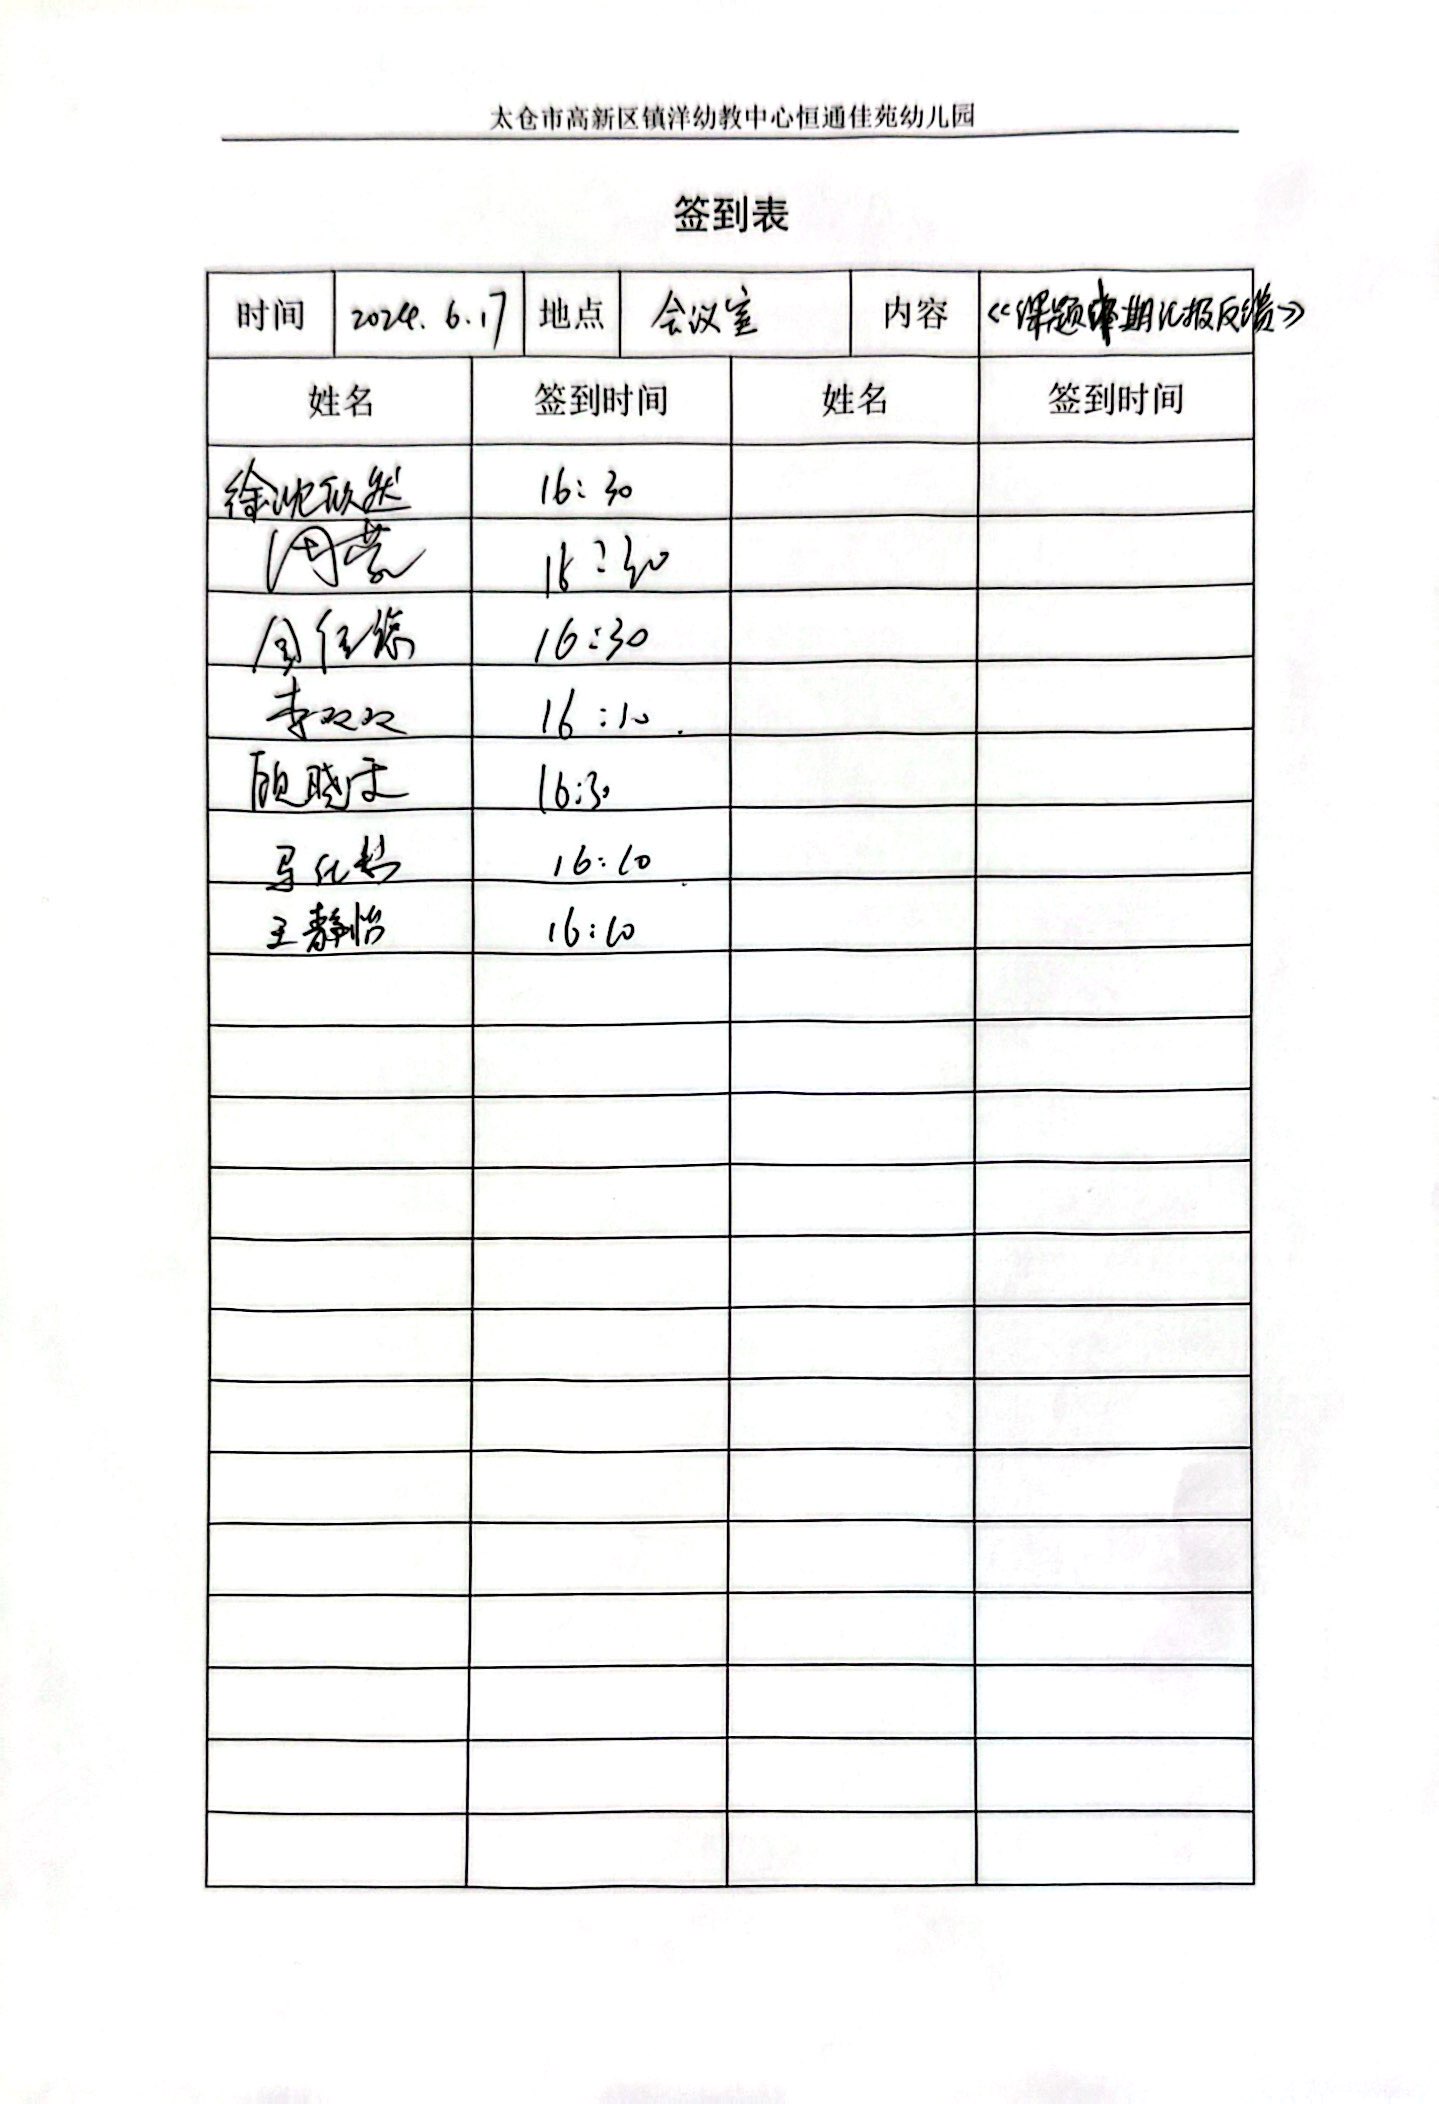 太仓市高新区镇洋幼教中心恒通佳苑幼儿园
签到表
时间 2024.6.17 地点 会议室 内容 《课题中期汇报反馈》
姓名 签到时间 姓名 签到时间
徐沈欣然 16:30
周 16:30
周佳 16:30
李双双 16:10
顾晓 16:30
马 16:10
王静怡 16:10